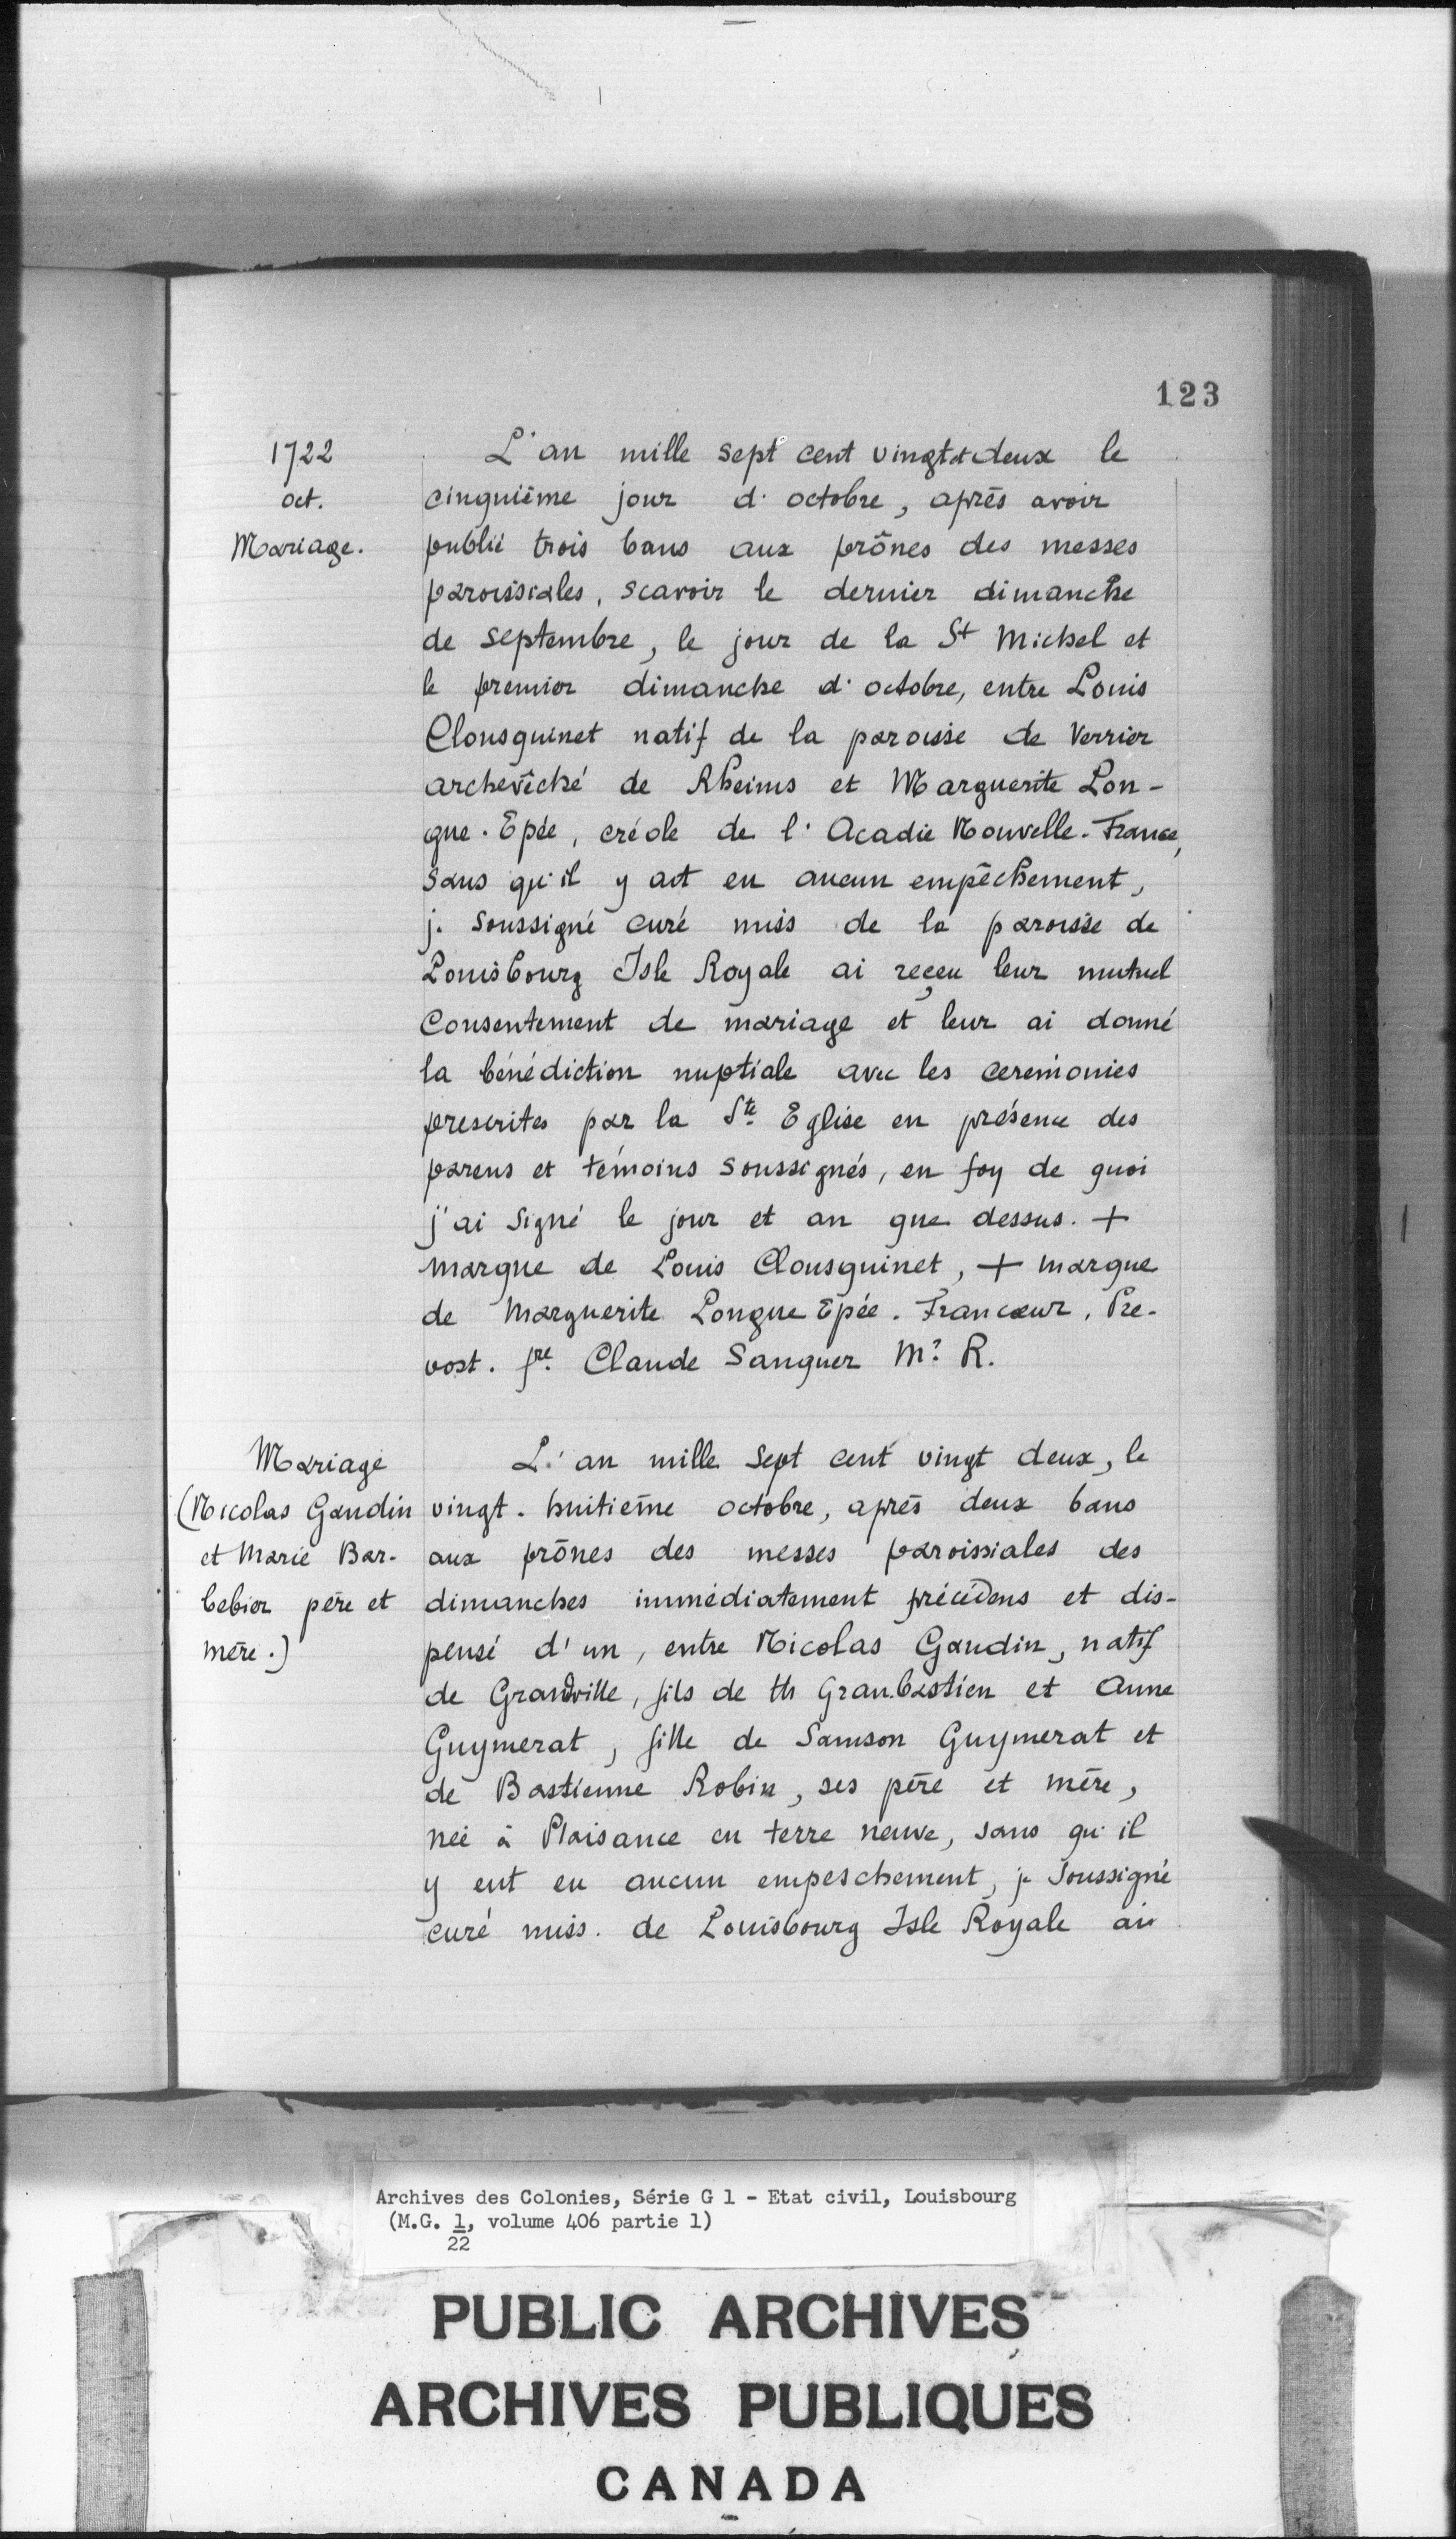 123
1722
oct.
Mariage.
L'an mille sept cent vingt et deux le
cinquième jour d'octobre, après avoir
publié trois bans aux prônes des messes
paroissiales, scavoir le dernier dimanche
de septembre, le jour de la St Michel et
le premier dimanche d'octobre, entre Louis
Clousquinet natif de la paroisse de Verrier
archevêché de Rheims et Marguerite Lon-
gue-Epée, créole de l'Acadie Nouvelle-France,
sans qu'il y ait eu aucun empêchement,
je soussigné curé miss de la paroisse de
Louisbourg Isle Royale ai reçeu leur mutuel
consentement de mariage et leur ai donné
la bénédiction nuptiale avec les cerémonies
prescrites par la Ste Eglise en présence des
parens et témoins soussignés, en foy de quoi
j'ai signé le jour et an que dessus. +
marque de Louis Clousquinet, + marque
de Marguerite Longue Epée. Francœur. Pre-
vost. fre Claude Sanquer M. R.
Mariage
(Nicolas Gaudin
et Marie Bar-
bebier père et
mère.)
L'an mille sept cent vingt deux, le
vingt-huitième octobre, après deux bans
aux prônes des messes paroissiales des
dimanches immédiatement précédens et dis-
pensé d'un, entre Nicolas Gaudin, natif
de Grandville, fils de th Gran.bastien et Anne
Guymerat, fille de Samson Guymerat et
de Bastienne Robin, ses père et mère,
née à Plaisance en terre neuve, sans qu'il
y eut eu aucun empeschement, je soussigné
curé miss. de Louisbourg Isle Royale ai
Archives des Colonies, Série G 1 - Etat civil, Louisbourg
(M.G. 1, volume 406 partie 1)
22
PUBLIC ARCHIVES
ARCHIVES PUBLIQUES
CANADA